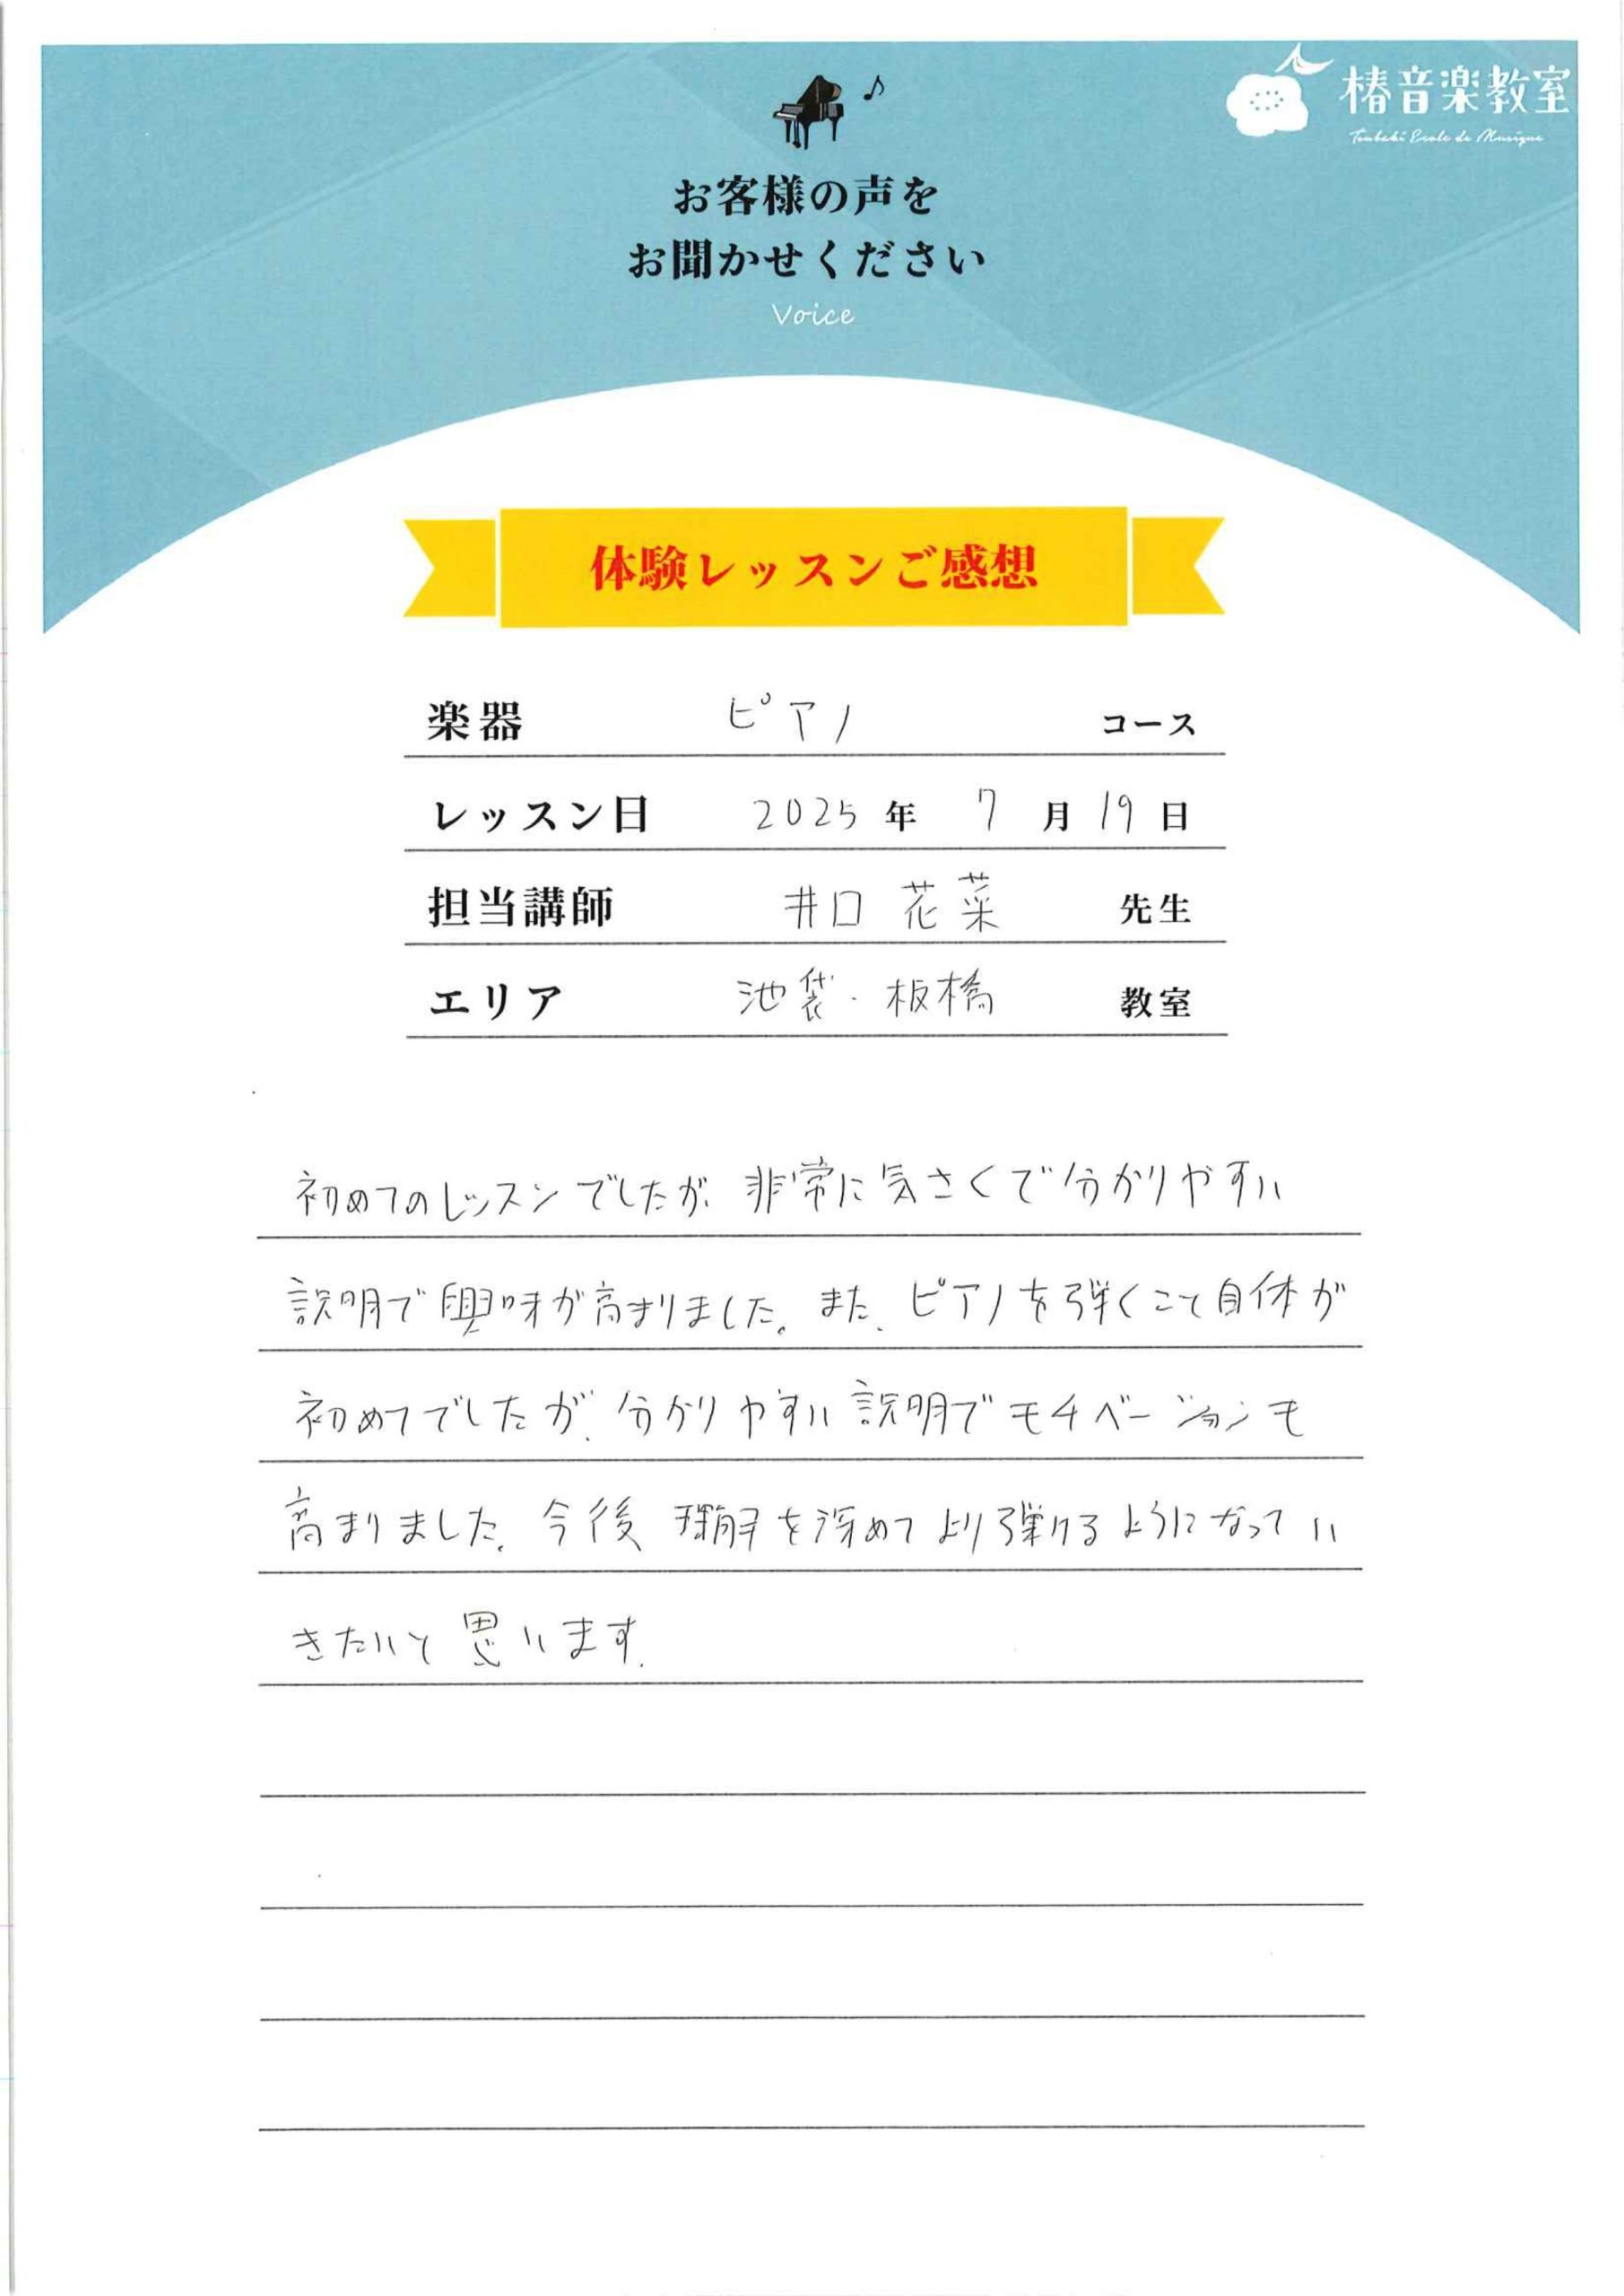 椿音楽教室
Tsubaki Ecole de Musique
お客様の声を
お聞かせください
Voice
体験レッスンご感想
楽器 ピアノ コース
レッスン日 2025 年 7 月 19 日
担当講師 井口 花菜 先生
エリア 池袋・板橋 教室
初めてのレッスンでしたが、非常に気さくで分かりやすい
説明で興味が高まりました。また、ピアノを弾くこと自体が
初めてでしたが、分かりやすい説明でモチベーションも
高まりました。今後 理解を深めてより弾けるようになってい
きたいと思います。